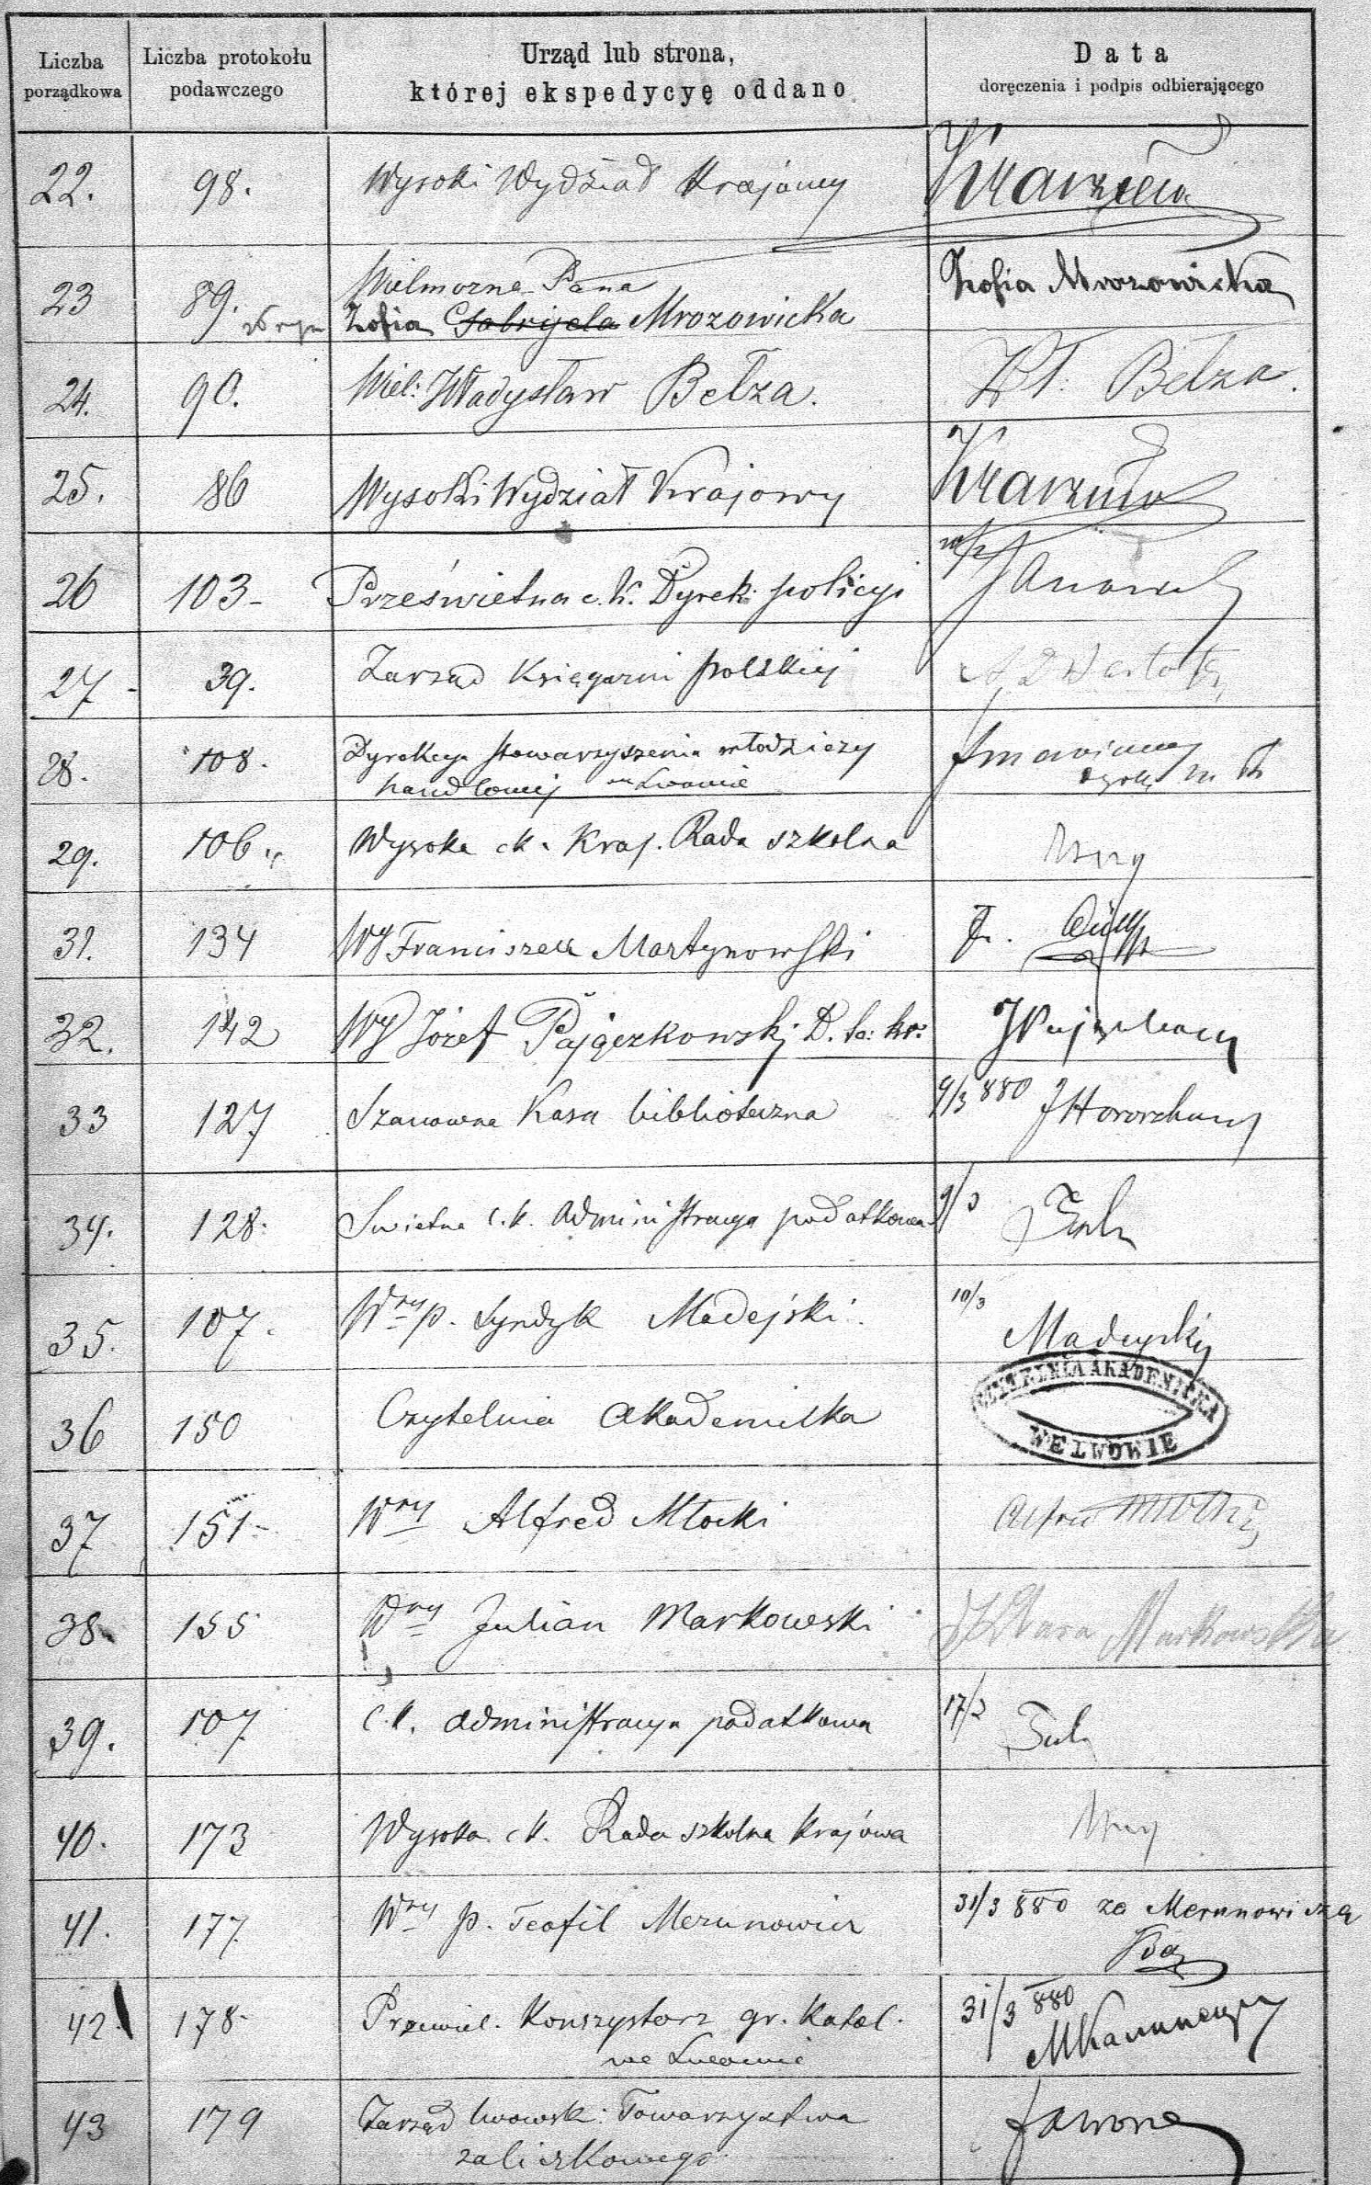 Liczba porządkowa
Liczba protokołu podawczego
Urząd lub strona, której ekspedycyę oddano
Data doręczenia i podpis odbierającego
22. 98. Wysoki Wydział Krajowy
23 89. Wielmożna Pana Zofia Gabryela Mrozowicka Zofia Mrozowicka
24. 90. Wiel: Władysław Bełza. Wł. Bełza.
25. 86 Wysoki Wydział Krajowy
26 103- Prześwietna c. k. Dyrek: policyi
27- 39. Zarząd Księgarni polskiej
28. 108. Dyrekcya stowarzyszenia młodzieży
handlowej we Lwowie
29. 106 Wysoka c k. Kraj. Rada szkolna
31. 134 Wy Franciszek Martynowski
32. 142 Wy Józef Pajączkowski D.
33 127 Szanowna Kasa biblioteczna 9/3 880
34. 128. Swietna c. k. Administracya podatkowa 9/3
35. 107. Wny p. Syndyk Madejski. 10/3 Madeyski
36 150 Czytelnia akademicka CZYTELNIA AKADEMICKA
WE LWOWIE
37 151- Wny Alfred Młocki Alfred Młocki
38. 155 Wny Julian Markowski Markowska
39. 107 c. k. administracya podatkowa 17/3
40. 173 Wysoka c k. Rada szkolna krajowa
41. 177 Wny p. Teofil Merunowicz 31/3 880 za Merunowicza
42. 178- Przewiel. Konszystorz gr. katol. 31/3 880
we Lwowie
43 179 Zarząd lwowsk: Towarzystwa
zaliczkowego